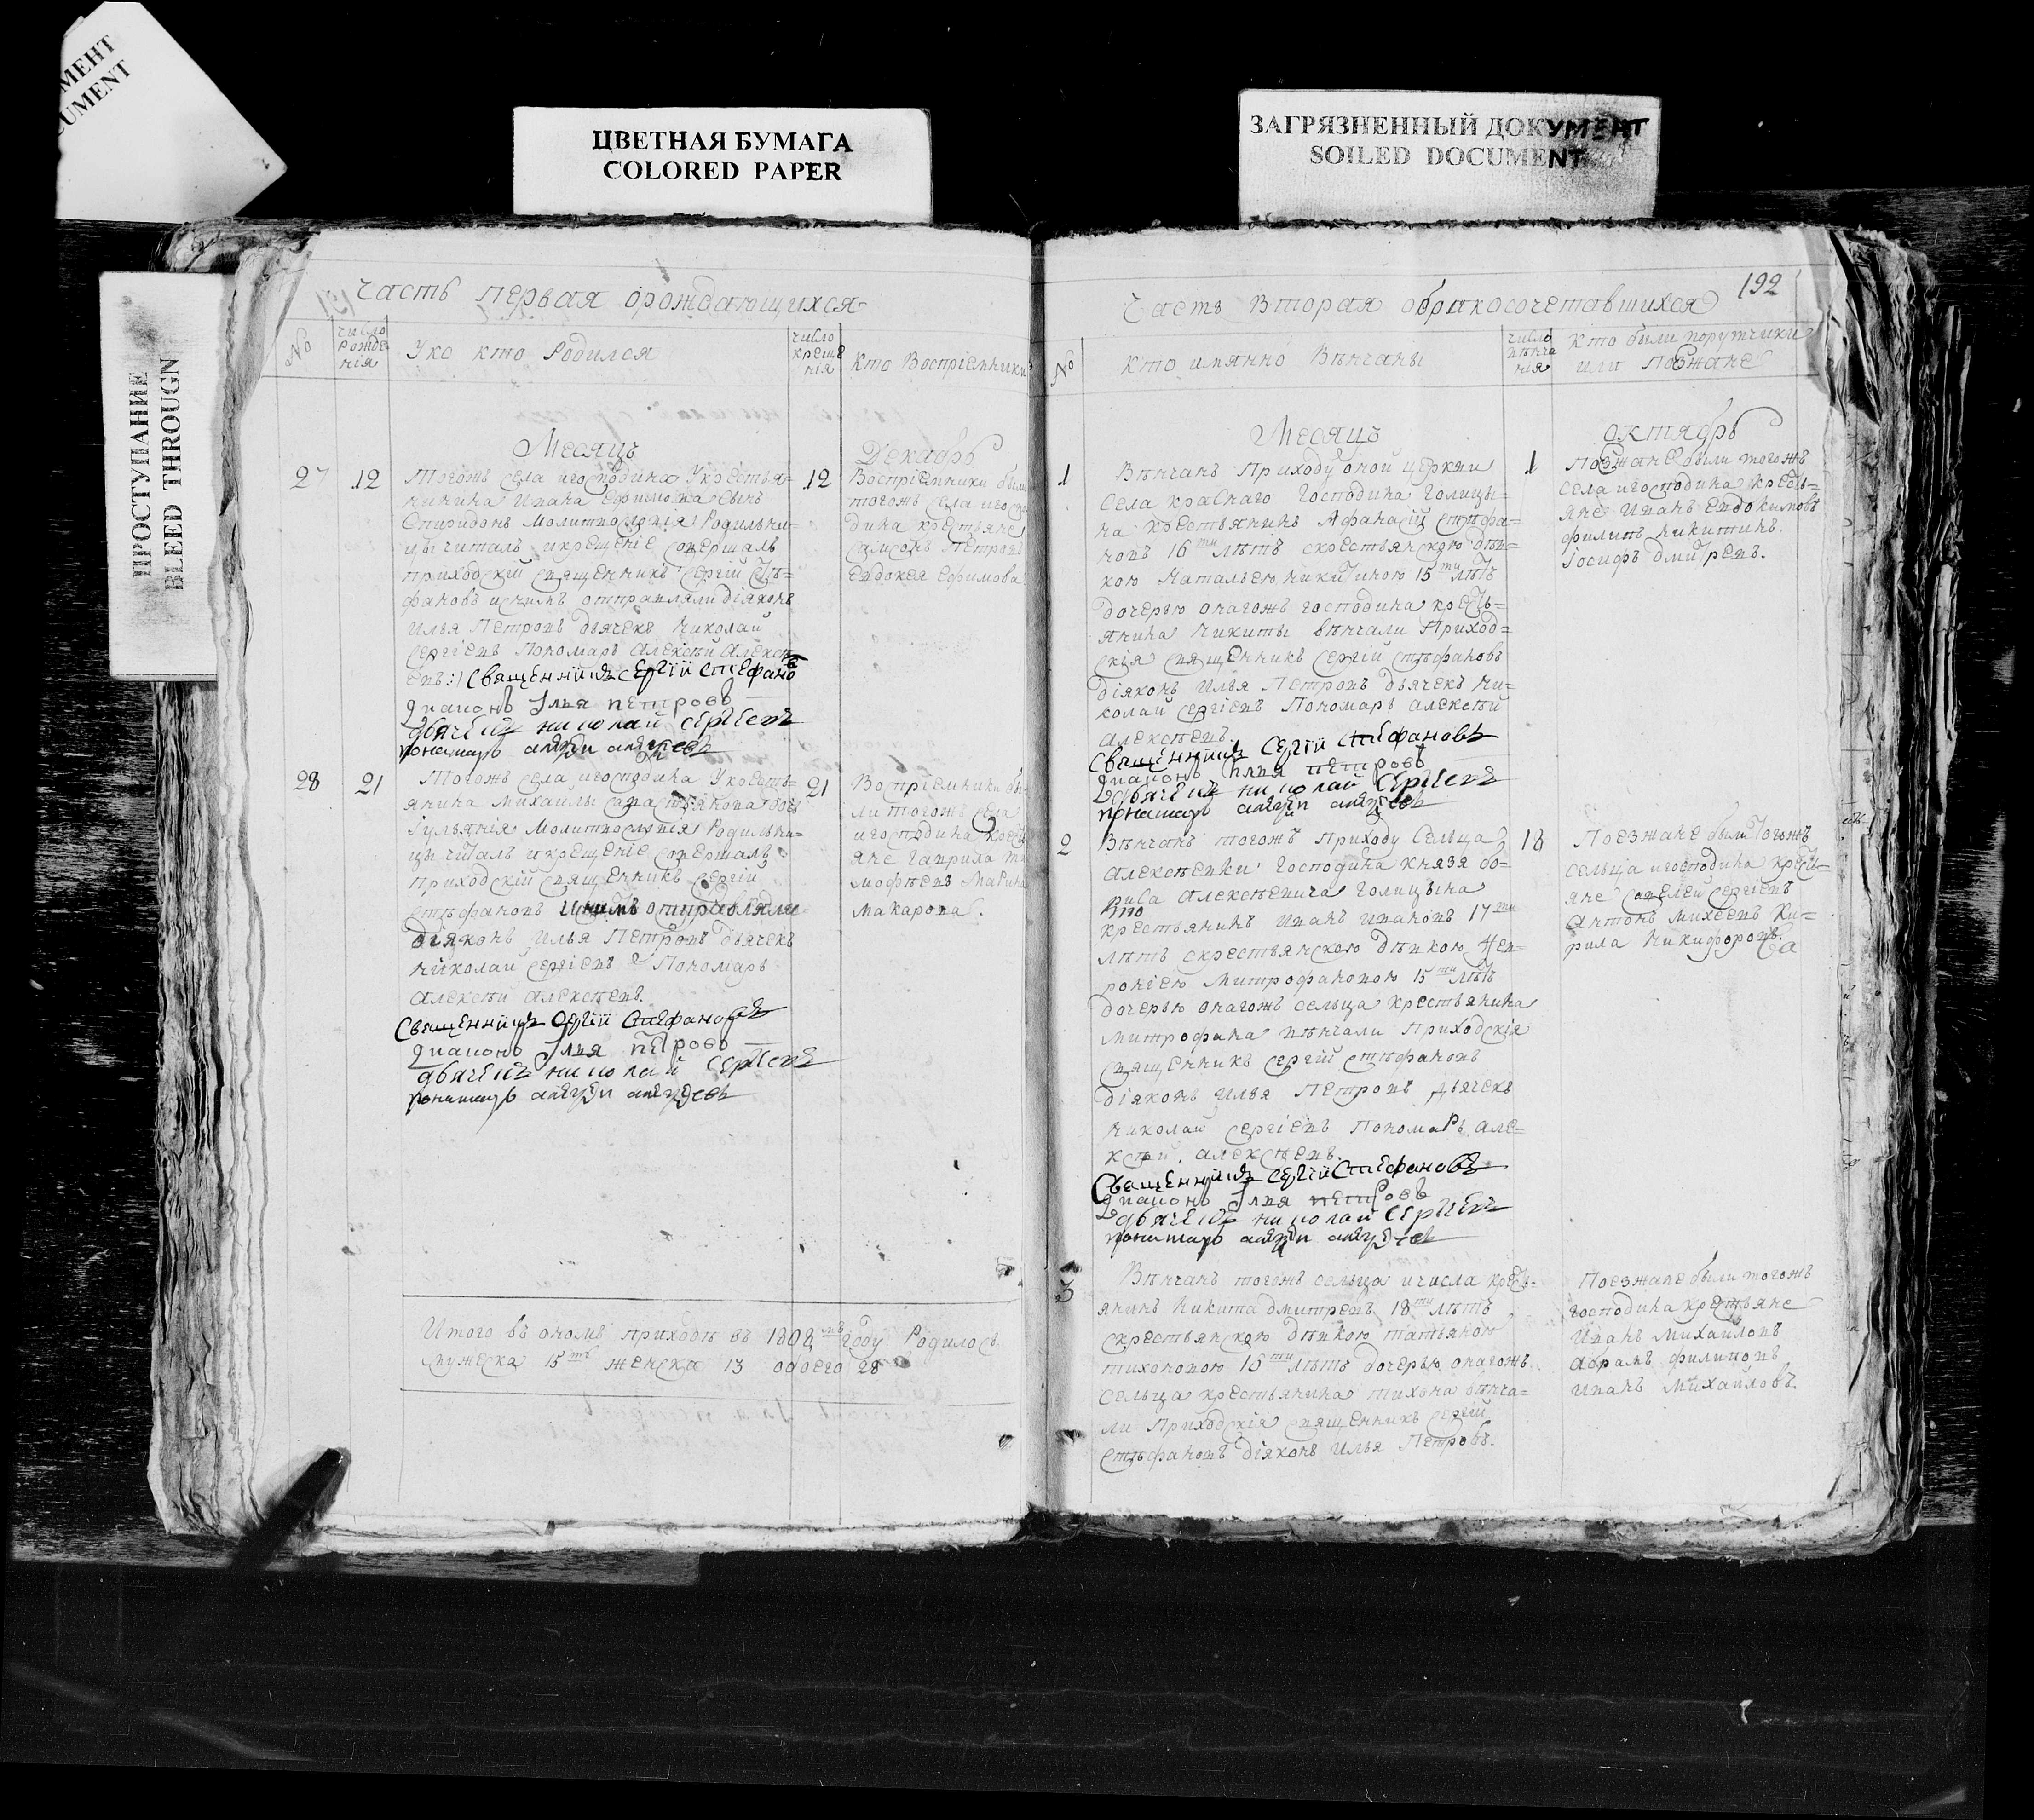 МЕНТ
CUMENT
ЦВЕТНАЯ БУМАГА
COLORED PAPER
ЗАГРЯЗНЕННЫЙ ДОКУМЕНТ
SOILED DOCUMENT
ПРОСТУПАНИЕ
BLEED THROUGN
Часть первая орождающихся
№
число рожденiя
Уко кто Родился
число крещенiя
Кто Воспрiемники
Месяцъ
Декабрь
27
12
Тогожъ села игосподина Укрестья=
нинина Ивана Ефимова сынъ
Спиридонъ молитвословiя Родильни=
цы читалъ икрещенiе совершалъ
приходскiй священникъ Сергiй Стѣ=
фановъ иснимъ отправляли дiяконъ
Илья Петровъ дьячекъ Николай
Сергiевъ Пономарь Алексѣй Алексѣ
евъ:/ Священникъ Сергiй Стефановъ
Диаконъ Iлья петровъ
дьячекъ николай Сергiевъ
понамарь алексѣи алексѣевъ
12
Воспрiемники были
тогожъ села игоспо
дина крестьяне
Самсонъ Петровъ
Евдокея Ефимова
28
21
Тогожъ села игосподина Укресть=
янина Михайлы Савастьянова дочь
Iульянiя Молитвословiя Родильни=
цы читалъ икрещенiе совершалъ
приходскiй священникъ Сергiй
Стѣфановъ иснимъ отправляли
дiяконъ Илья Петровъ дьячекъ
Николай Сергiевъ Пономарь
Алексѣй Алексѣевъ.
Священникъ Сергiй Стефановъ
Диаконъ Iлья петровъ
дьячекъ николай Сергiевъ
понамарь алексѣи алексѣевъ
21
Воспрiемники бы
ли тогожъ села
игосподина кресть
яне Гаврила Ти
мофѣевъ Марина
Макарова.
Итого въ ономъ приходѣ въ 1808мъ году Родилось
мужеска 15ть женска 13 обоего 28
192
Часть Вторая обракосочетавшихся
№
кто имянно Вѣнчаны
число вѣнчанiя
Кто были порутчики
или Поѣжане
Месяцъ
октябрь
1
Вѣнчанъ Приходу оной церкви
Села краснаго Господина Голицы=
на крестьянинъ Афанасiй Стѣфа=
новъ 16ти лѣтъ скрестьянскою дѣв=
кою Натальею Никитиною 15ти лѣтъ
дочерью онагожъ господина кресть=
янина Никиты вѣнчали Приход=
скiя священникъ Сергiй Стѣфановъ
дiяконъ Илья Петровъ дьячекъ Ни=
колай Сергiевъ Пономарь Алексѣй
Алексѣевъ.
Священникъ Сергiй Стефановъ
Диаконъ Илья петровъ
дьячекъ николай Сергiевъ
понамарь алексѣи алексѣевъ
1
Поѣжане были тогожъ
села игосподина кресть=
яне Иванъ Евдокимовъ
филипъ Никитинъ.
Iосифъ дмитревъ.
2
Вѣнчанъ тогожъ Приходу Сельца
Алексѣевки Господина князя бо=
риса Алексѣевича Голицына
крестьянинъ Иванъ Ивановъ 17ти
лѣтъ скрестьянскою дѣвкою Фев=
ронiею Митрофановою 15ти лѣтъ
дочерью онагожъ сельца крестьянина
Митрофана вѣнчали Приходскiя
священникъ Сергiй Стѣфановъ
дiяконъ Илья Петровъ дьячекъ
Николай Сергiевъ Пономарь Але=
ксѣй Алексѣевъ.
Священникъ Сергiй Стефановъ
Диаконъ Iлья петровъ
дьячекъ николай Сергiевъ
понамарь алексѣи алексѣевъ
18
Поезжане были тогожъ
сельца игосподина кресть=
яне Савелей Сергiевъ
Антонъ Михеевъ Ки=
рила Никифоровъ.
3
Вѣнчанъ тогожъ сельца ичисла кресть=
янинъ Никита дмитревъ 18ти лѣтъ
скрестьянскою дѣвкою татьяною
тихоновою 16ти лѣтъ дочерью онагожъ
Сельца крестьянина тихона вѣнча=
ли Приходскiя священникъ Сергiй
Стѣфановъ дiяконъ Илья Петровъ.
Поезжане были тогожъ
господина крестьяне
Иванъ Михайловъ
Абрамъ филиповъ
Иванъ Михайловъ.